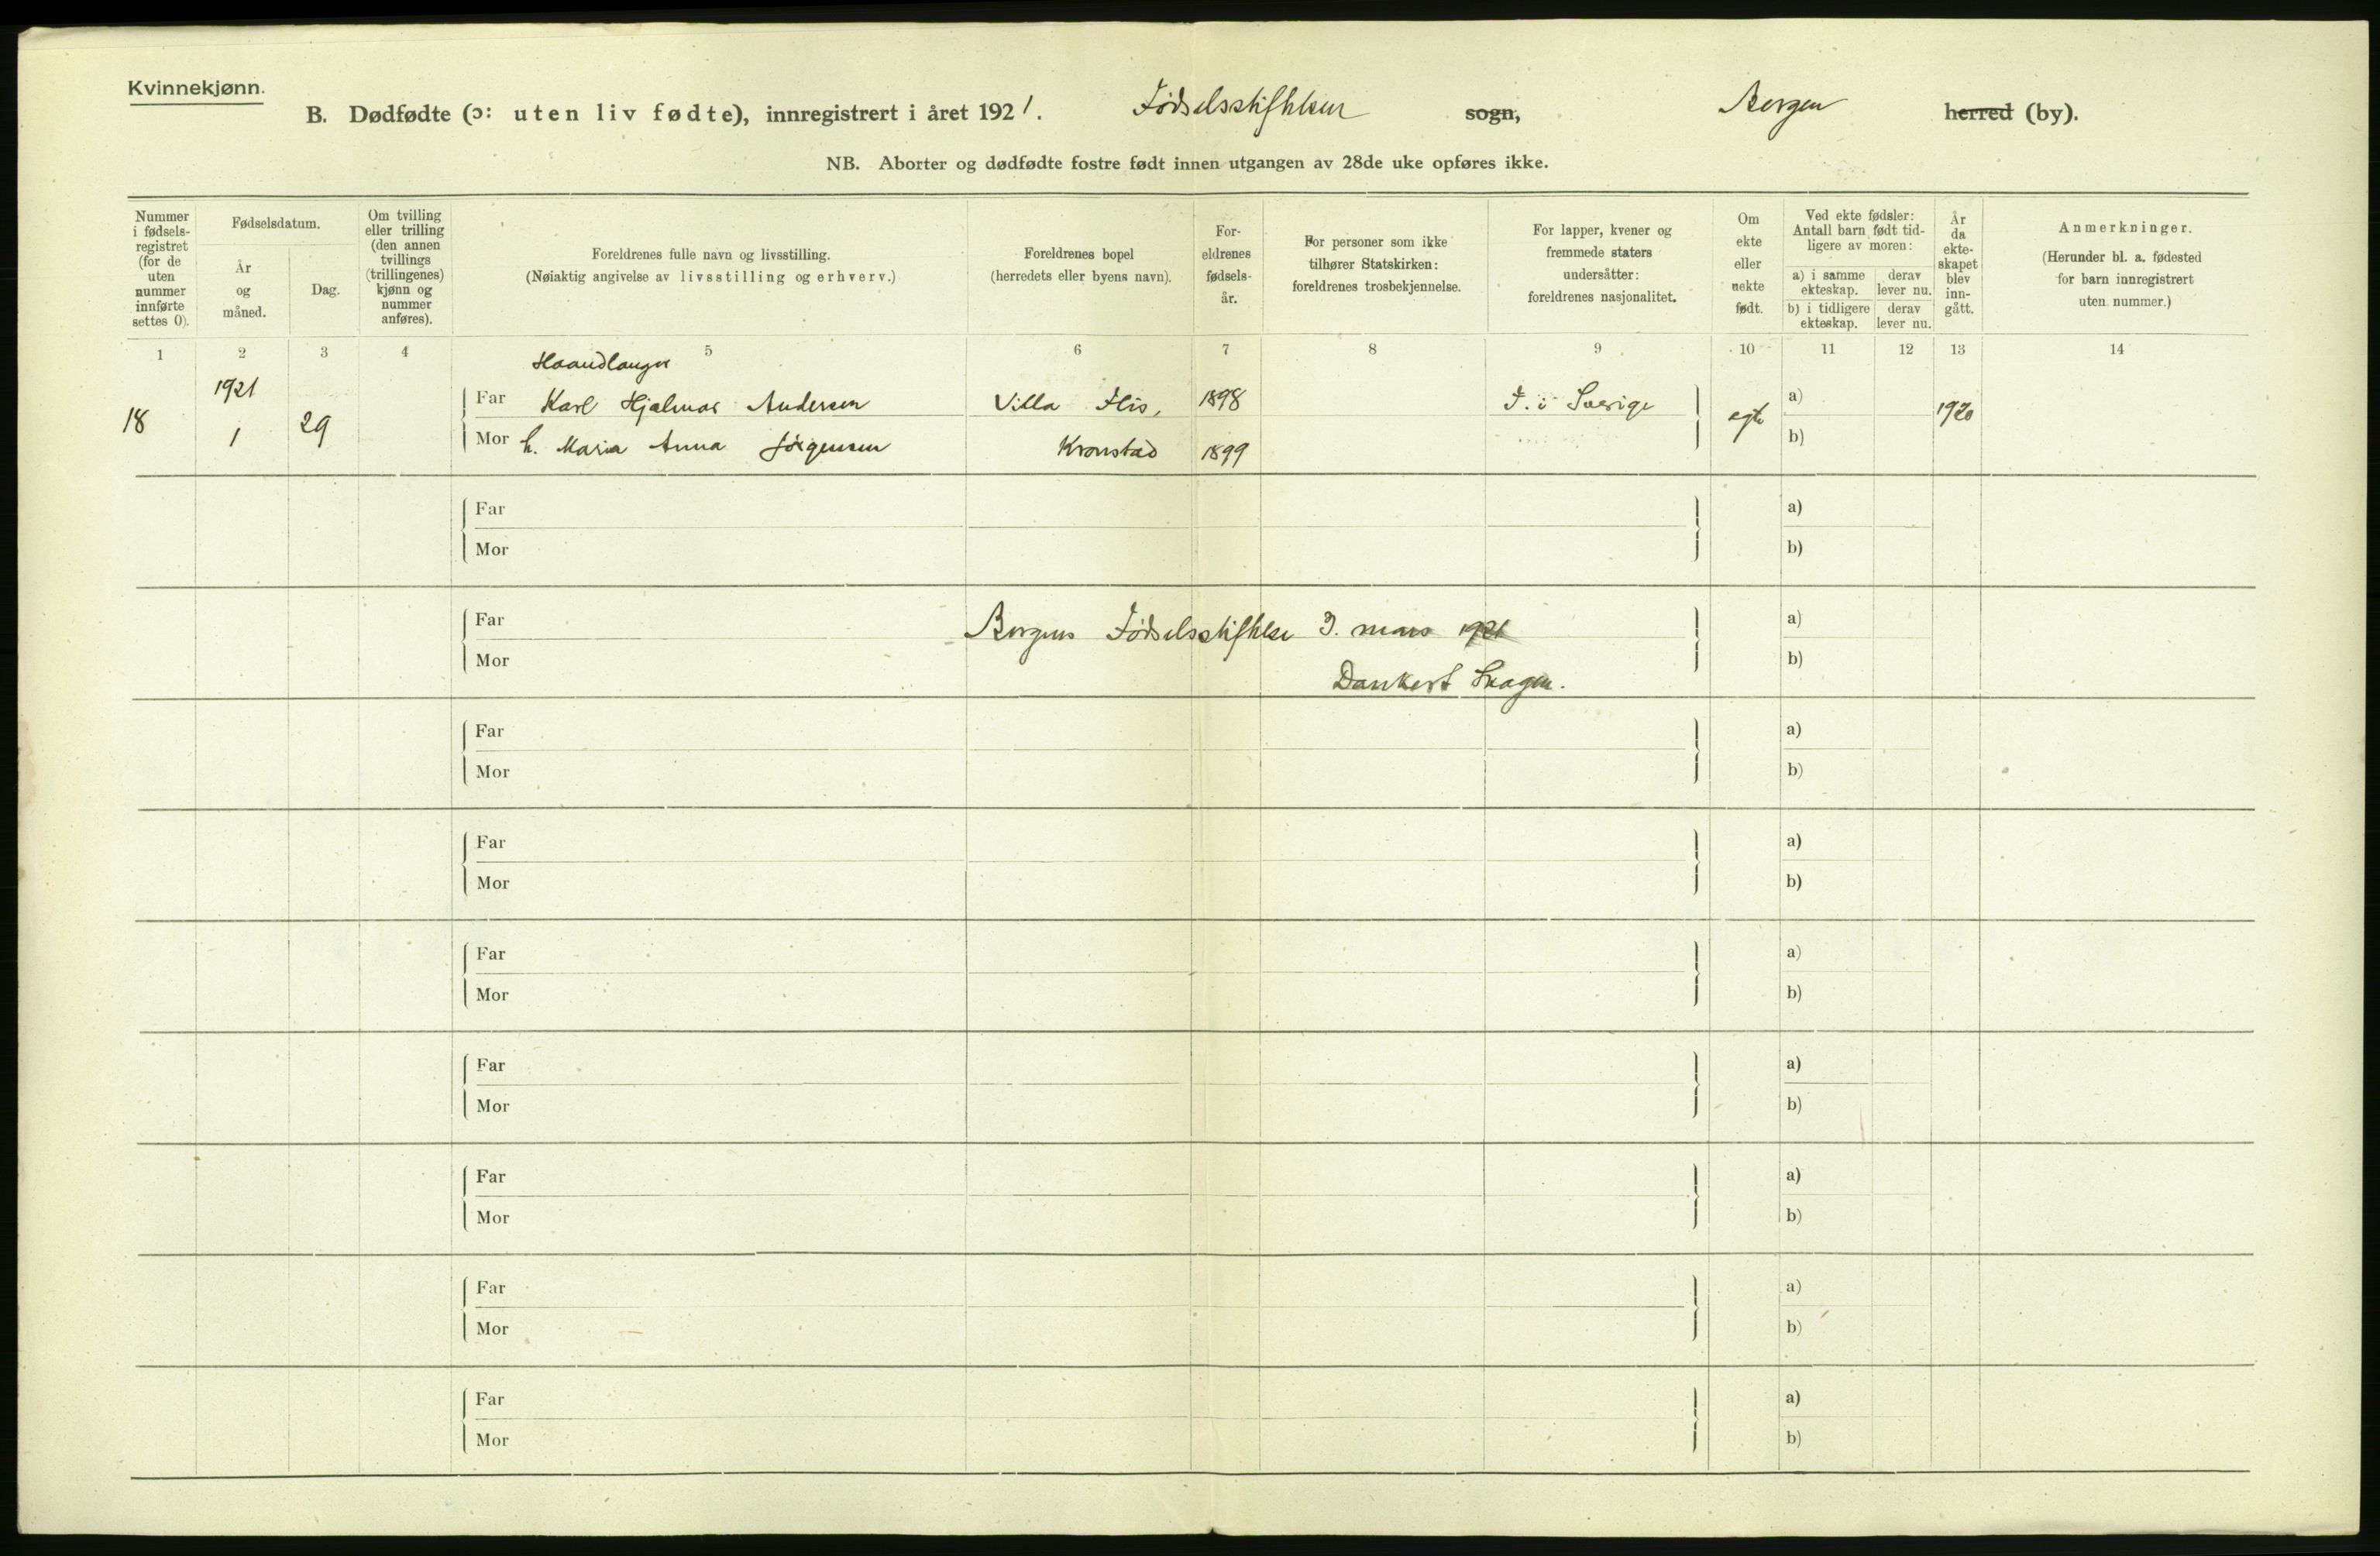 Kvinnekjønn.
B. Dødfødte (ɔ: uten liv fødte), innregistrert i året 1921. Fødselsstiftelsen sogn, Bergen herred (by).
NB. Aborter og dødfødte fostre født innen utgangen av 28de uke opføres ikke.
Nummer i fødsels-registret (for de uten nummer innførte settes 0).
Fødselsdatum.
År og måned.
Dag.
Om tvilling eller trilling (den annen tvillings (trillingenes) kjønn og nummer anføres).
Foreldrenes fulle navn og livsstilling.
(Nøiaktig angivelse av livsstilling og erhverv.)
Foreldrenes bopel
(herredets eller byens navn).
For-eldrenes fødsels-år.
For personer som ikke tilhører Statskirken: foreldrenes trosbekjennelse.
For lapper, kvener og fremmede staters undersåtter: foreldrenes nasjonalitet.
Om ekte eller uekte født.
Ved ekte fødsler: Antall barn født tid-ligere av moren:
a) i samme ekteskap. derav lever nu.
b) i tidligere ekteskap. derav lever nu.
År da ekte-skapet blev inn-gått.
Anmerkninger.
(Herunder bl. a. fødested for barn innregistrert uten nummer.)
1 2 3 4 5 6 7 8 9 10 11 12 13 14
Haandlanger
18 1921 Far Karl Hjalmar Andersen Villa Flis, 1898 F. i Sverige egte a) 1920
1 29 Mor h. Maria Anna Jørgensen Kronstad 1899 b)
Far a)
Mor b)
Far Bergens Fødselsstiftelse 3. mars 1921 a)
Mor Dankert Skagen. b)
Far a)
Mor b)
Far a)
Mor b)
Far a)
Mor b)
Far a)
Mor b)
Far a)
Mor b)
Far a)
Mor b)
Far a)
Mor b)